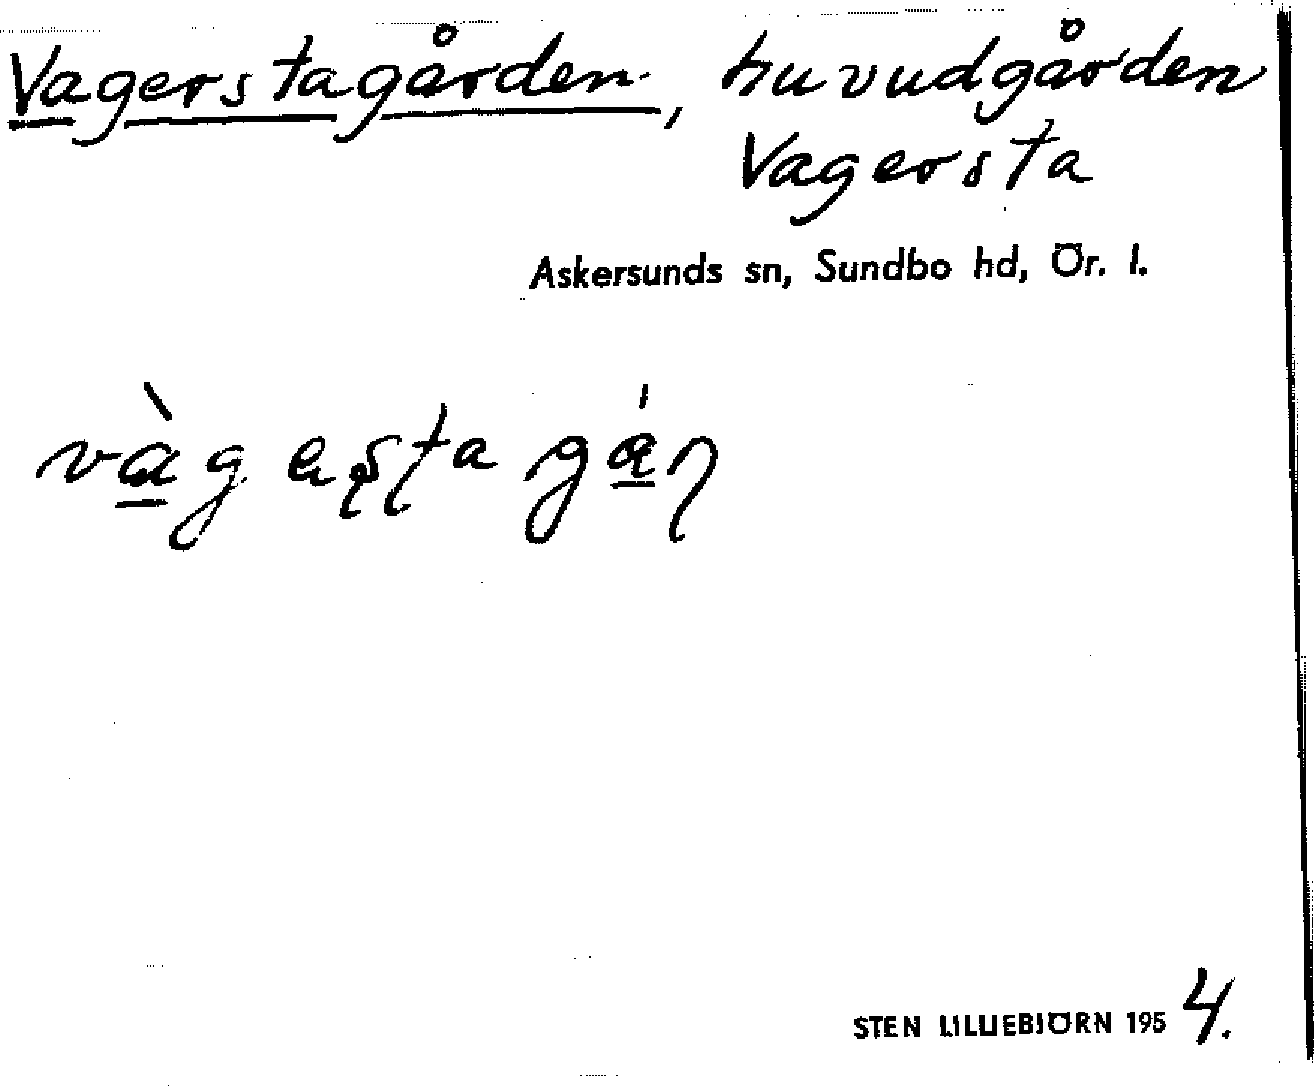 Vagerstagården, huvudgården
Vagersta
Askersunds sn, Sundbo hd, Ör. l.
vàgaʂʈagáɳ
STEN LILLIEBJÖRN 1954.